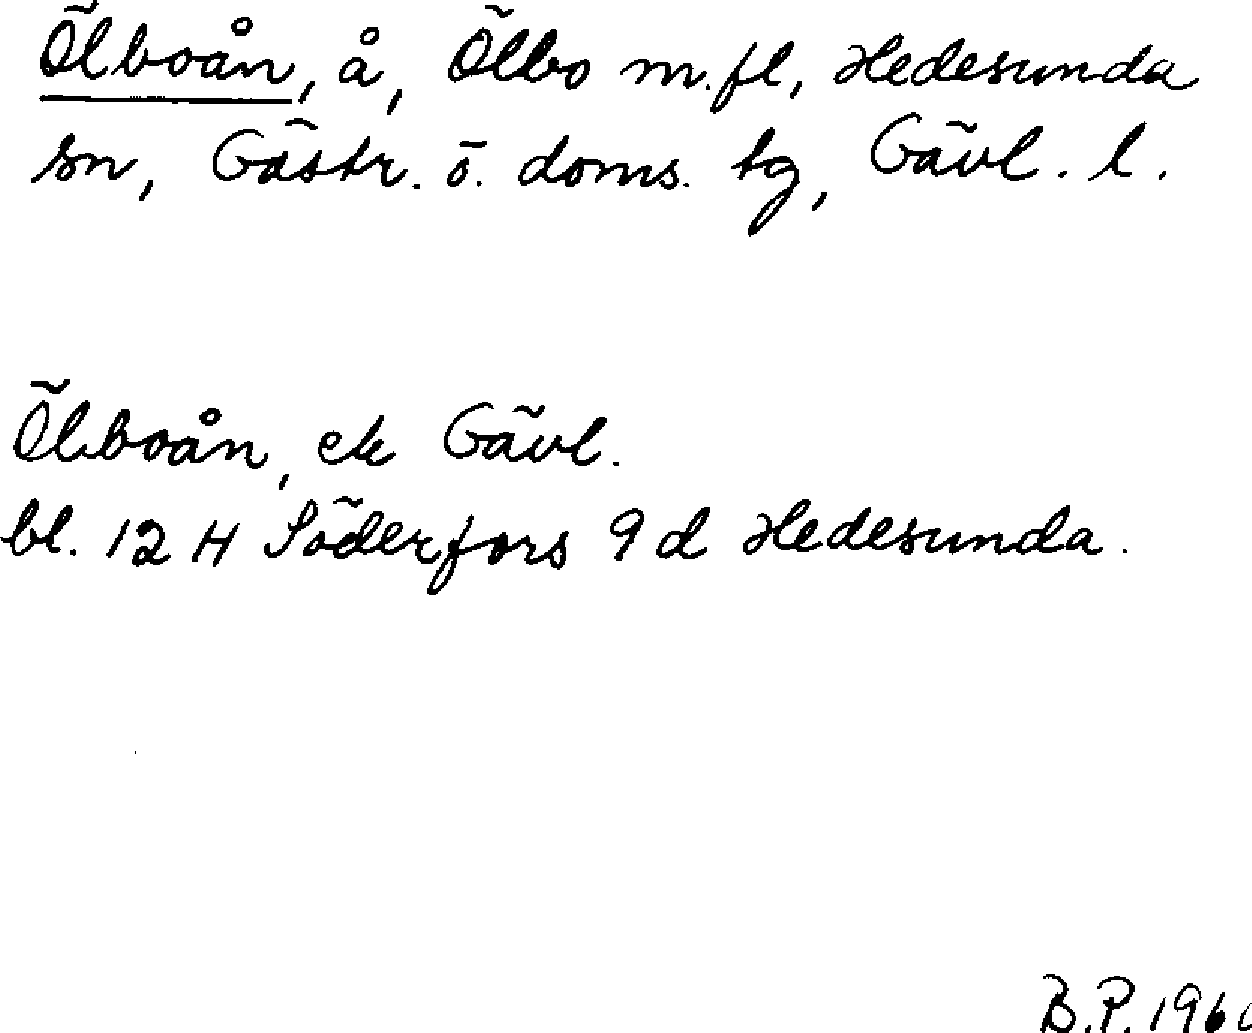 Ölboån, å, Ölbo m.fl, Hedesunda
sn, Gästr. ö. doms. tg, Gävl. l.
Ölboån, ek Gävl.
bl. 12 H Söderfors 9 d Hedesunda.
B.P.